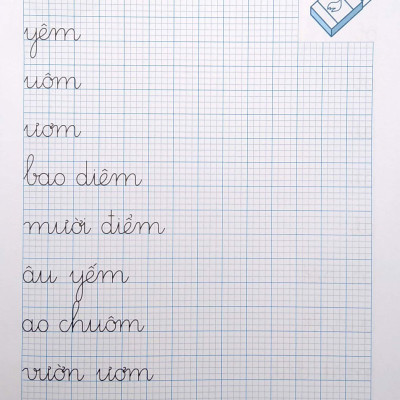 yêm
uôm
ươm
bao diêm
mười điểm
âu yếm
ao chuôm
vườn ươm